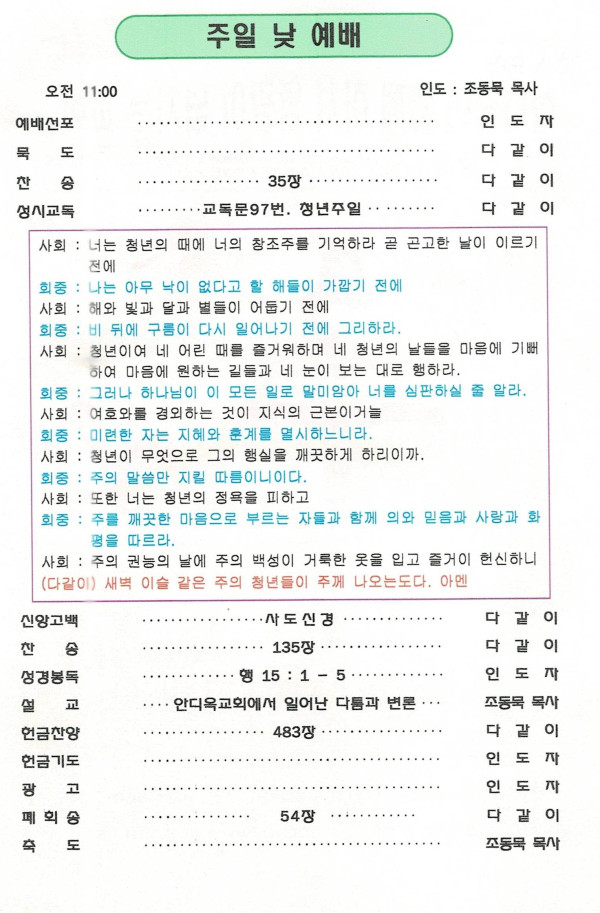 주일 낮 예배
오전 11:00 인도 : 조동묵 목사
예배선포 ······ 인 도 자
묵 도 ······ 다 같 이
찬 송 ······ 35장 ······ 다 같 이
성시교독 ······ 교독문97번. 청년주일 ······ 다 같 이
사회 : 너는 청년의 때에 너의 창조주를 기억하라 곧 곤고한 날이 이르기
전에
회중 : 나는 아무 낙이 없다고 할 해들이 가깝기 전에
사회 : 해와 빛과 달과 별들이 어둡기 전에
회중 : 비 뒤에 구름이 다시 일어나기 전에 그리하라.
사회 : 청년이여 네 어린 때를 즐거워하며 네 청년의 날들을 마음에 기뻐
하여 마음에 원하는 길들과 네 눈이 보는 대로 행하라.
회중 : 그러나 하나님이 이 모든 일로 말미암아 너를 심판하실 줄 알라.
사회 : 여호와를 경외하는 것이 지식의 근본이거늘
회중 : 미련한 자는 지혜와 훈계를 멸시하느니라.
사회 : 청년이 무엇으로 그의 행실을 깨끗하게 하리이까.
회중 : 주의 말씀만 지킬 따름이니이다.
사회 : 또한 너는 청년의 정욕을 피하고
회중 : 주를 깨끗한 마음으로 부르는 자들과 함께 의와 믿음과 사랑과 화
평을 따르라.
사회 : 주의 권능의 날에 주의 백성이 거룩한 옷을 입고 즐거이 헌신하니
(다같이) 새벽 이슬 같은 주의 청년들이 주께 나오는도다. 아멘
신앙고백 ······ 사도신경 ······ 다 같 이
찬 송 ······ 135장 ······ 다 같 이
성경봉독 ······ 행 15 : 1 - 5 ······ 인 도 자
설 교 ···· 안디옥교회에서 일어난 다툼과 변론 ··· 조동묵 목사
헌금찬양 ······ 483장 ······ 다 같 이
헌금기도 ······ 인 도 자
광 고 ······ 인 도 자
폐 회 송 ······ 54장 ······ 다 같 이
축 도 ······ 조동묵 목사